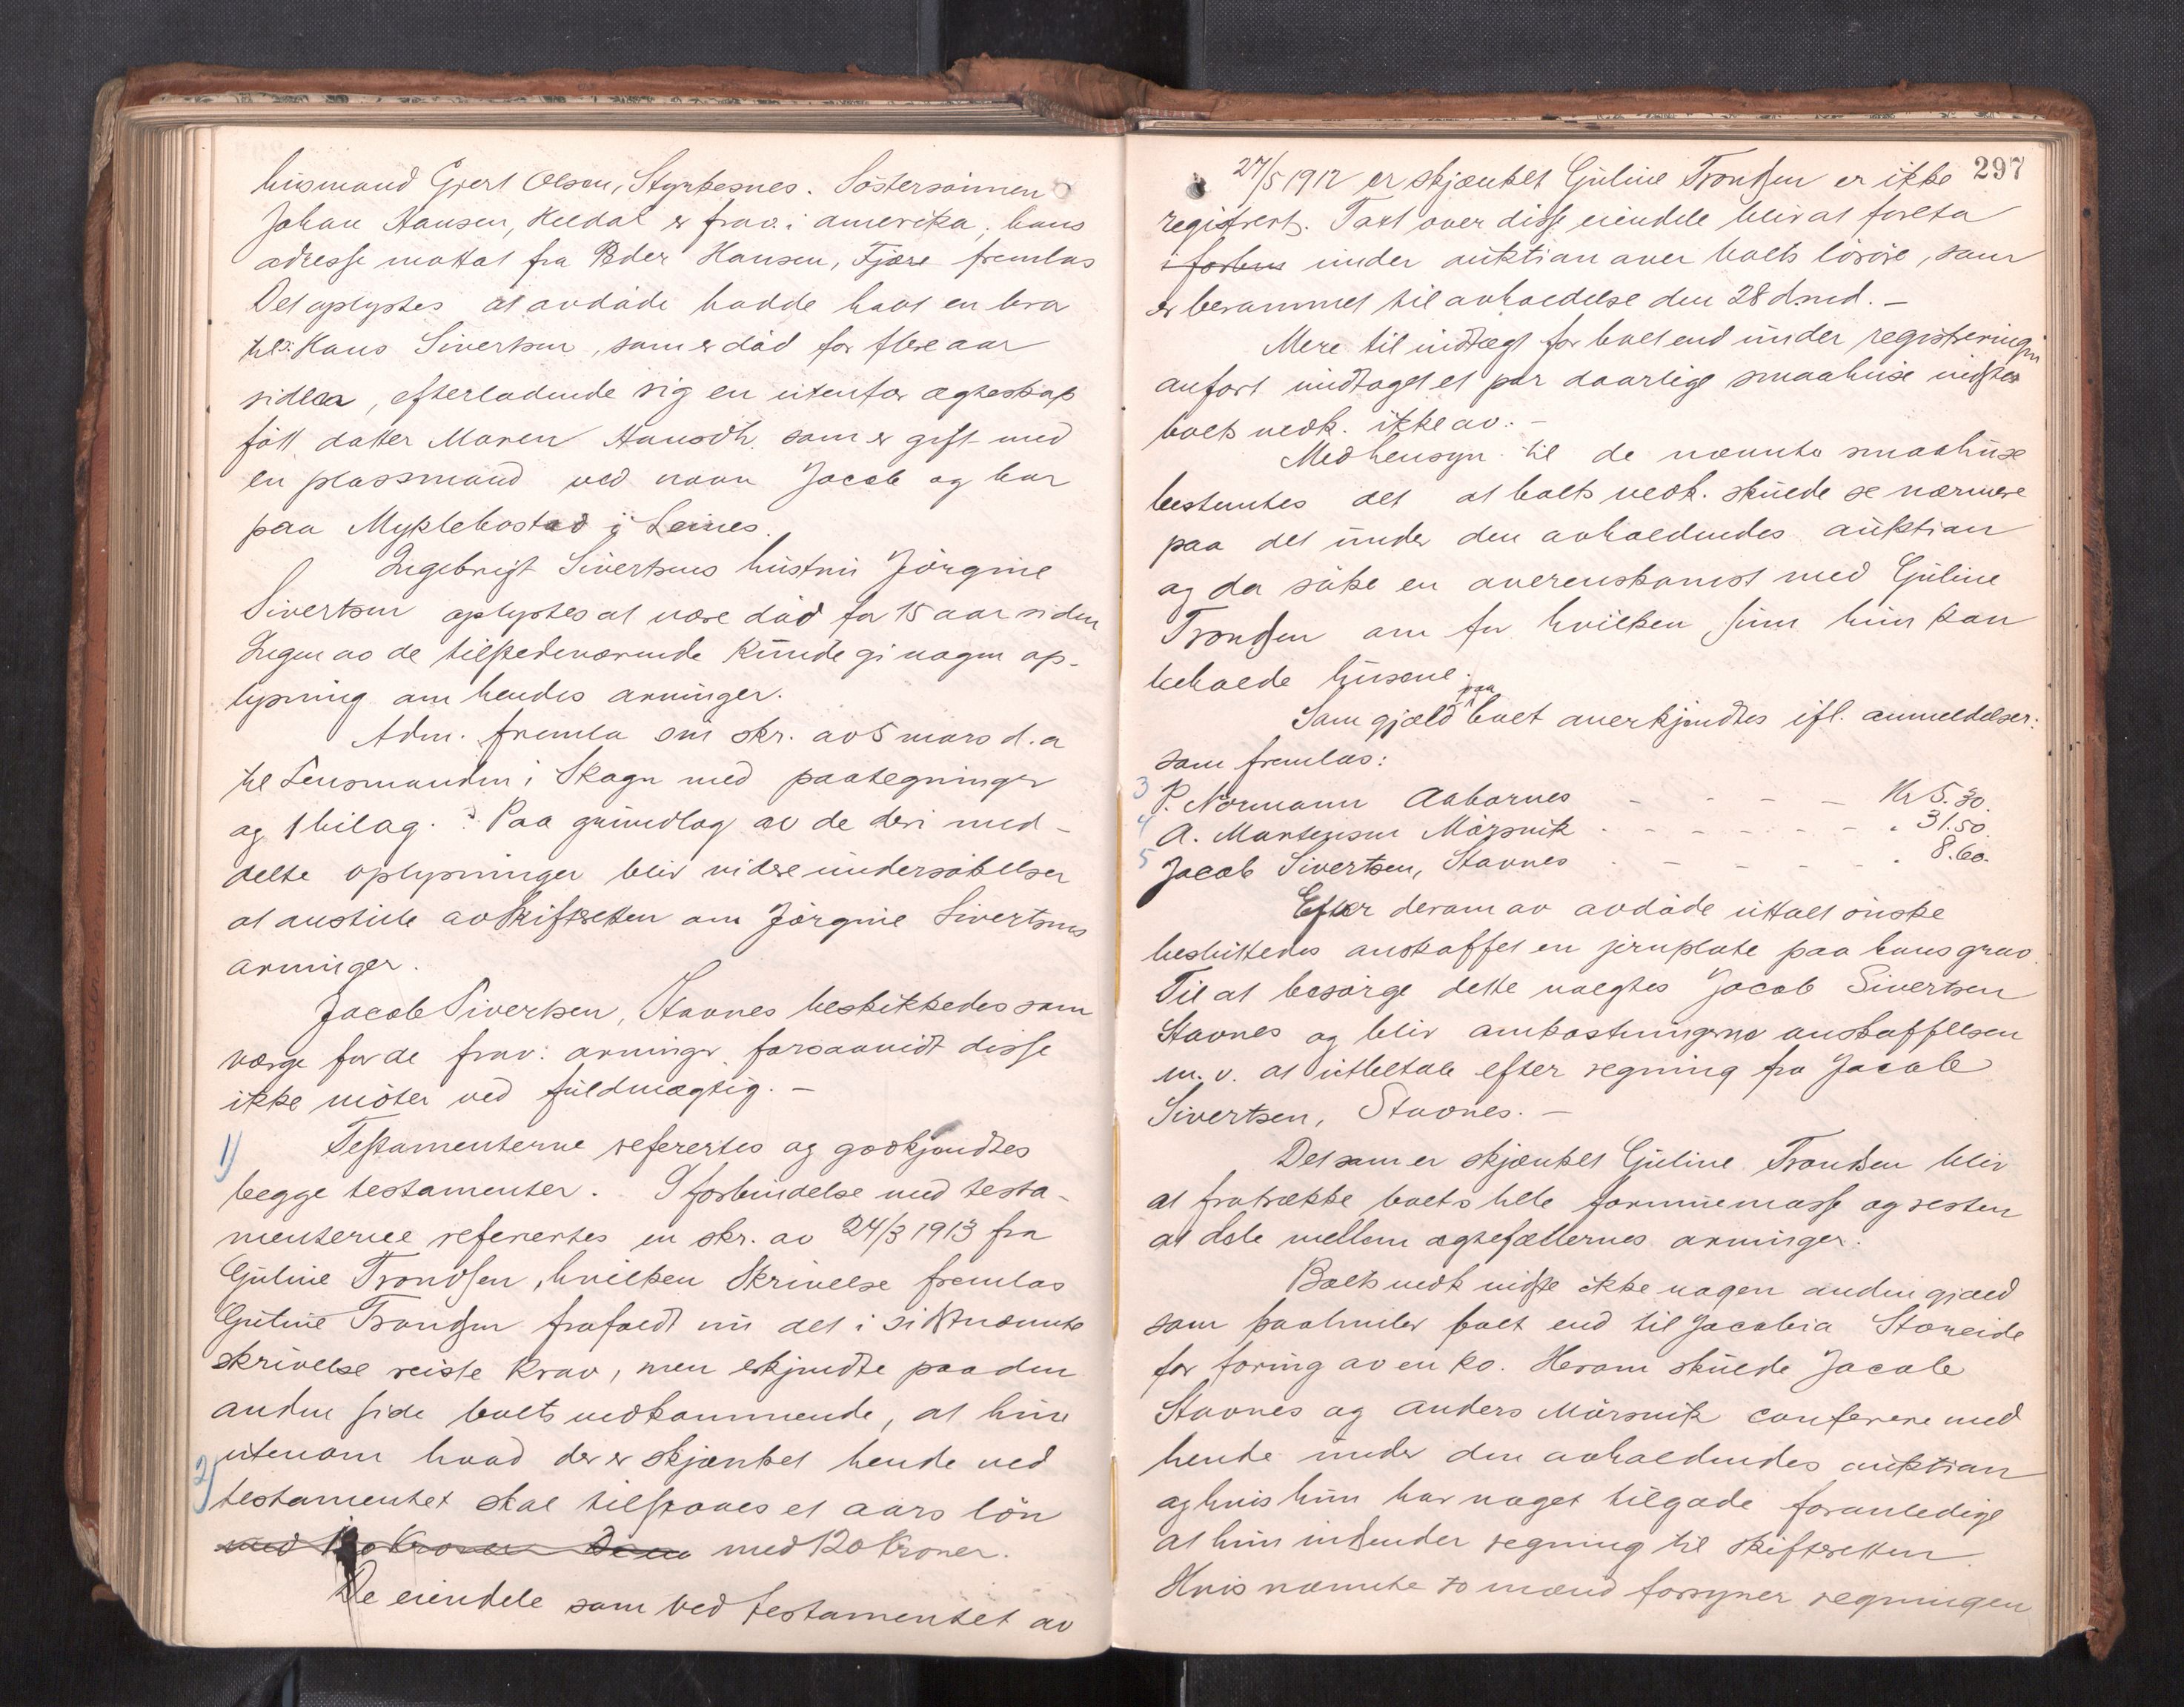 husmand Gjert Olsen, Styrkesnes. Søstersønnen
Johan Hansen, Heldal er frav. i amerika, hans
adresse mottat fra Peder Hansen, Fjære fremlas
Det oplystes at avdøde hadde havt en bror
Hans Sivertsen, som er død for flere aar
siden, efterladende sig en utenfor egteskap
født datter Maren Hansdtr. som er gift med
en plassmand ved navn Jacob og bor
paa Myklebostad i Leines.
Ingebrigt Sivertsens hustru Jørgine
Sivertsen oplystes at være død for 15 aar siden
Ingen av de tilstedeværende kunde gi nogen op-
lysning om hendes arvinger.
Adm. fremla sin skr. av 5 mars d.a
til Lensmanden i Skogn med paategninger
og 1 bilag. Paa grundlag av de deri med-
delte oplysninger blir videre undersøkelser
at anstille av skifteretten om Jørgine Sivertsens
arvinger.
Jacob Sivertsen, Stavnes beskikkedes som
verge for de frav. arvinger forsaavidt disse
ikke møter ved fuldmægtig. –
1) Testamenterne refererles og godkjendtes
begge testamenter. I forbindelse med testa-
menterne refererles en skr. av 24/3 1913 fra
Guline Trondsen, hvilken skrivelse fremlas
Guline Trondsen frafaldt nu det i sistnævnte
skrivelse reiste krav, men erkjendte paa den
anden side boets vedkommende, at hun
utenom hvad der er skjænket hende ved
2) testamentet skal tilstaaes et aars løn
med 120 kroner med 120 kroner.
De eiendele som ved testamentet av
297
27/5 1912 er skjænket Guline Trondsen er ikke
registrert. Taxt over disse eiendele blir at foreta
under auktion over boets løsøre, som
er berammet til avholdelse den 28 d.md. –
Mere til indtægt for boet end under registreringen
anført undtaget et par daarlige smaahuse vidste
boets vedk. ikke av. –
Med hensyn til de nævnte smaahuse
bestemtes det at boets vedk. skulde se nærmere
paa det under den avholdendes auktion
og da søke en overenskomst med Guline
Trondsen om for hvilken sum hun kan
beholde husene.
Som gjæld paa boet anerkjendtes ifl. anmeldelser:
som fremlas:
3 P. Normann Aabornes - - - - Kr 5.30.
4 A. Martensen Mørsvik - - - - - " 31.50.
5 Jacob Sivertsen, Stavnes - - - - " 8.60.
Efter derom av avdøde uttalt ønske
besluttedes anskaffet en jernplate paa hans grav.
Til at besørge dette valgtes Jacob Sivertsen
Stavnes og blir omkostningerne anskaffelsen
m.v. at utbetale efter regning fra Jacob
Sivertsen, Stavnes. –
Det som er skjænket Guline Trondsen blir
at fratrække boets hele formuemasse og resten
at dele mellem egtefællernes arvinger.
Boets vedk vidste ikke nogen anden gjæld
som paahviler boet end til Jacobia Storeide
for foring av en ko. Herom skulde Jacob
Stavnes og Anders Mørsvik conferere med
hende under den avholdendes auktion
og hvis hun har noget tilgode foranledige
at hun indsender regning til skifteretten.
Hvis nævnte to mænd forsyner regningen